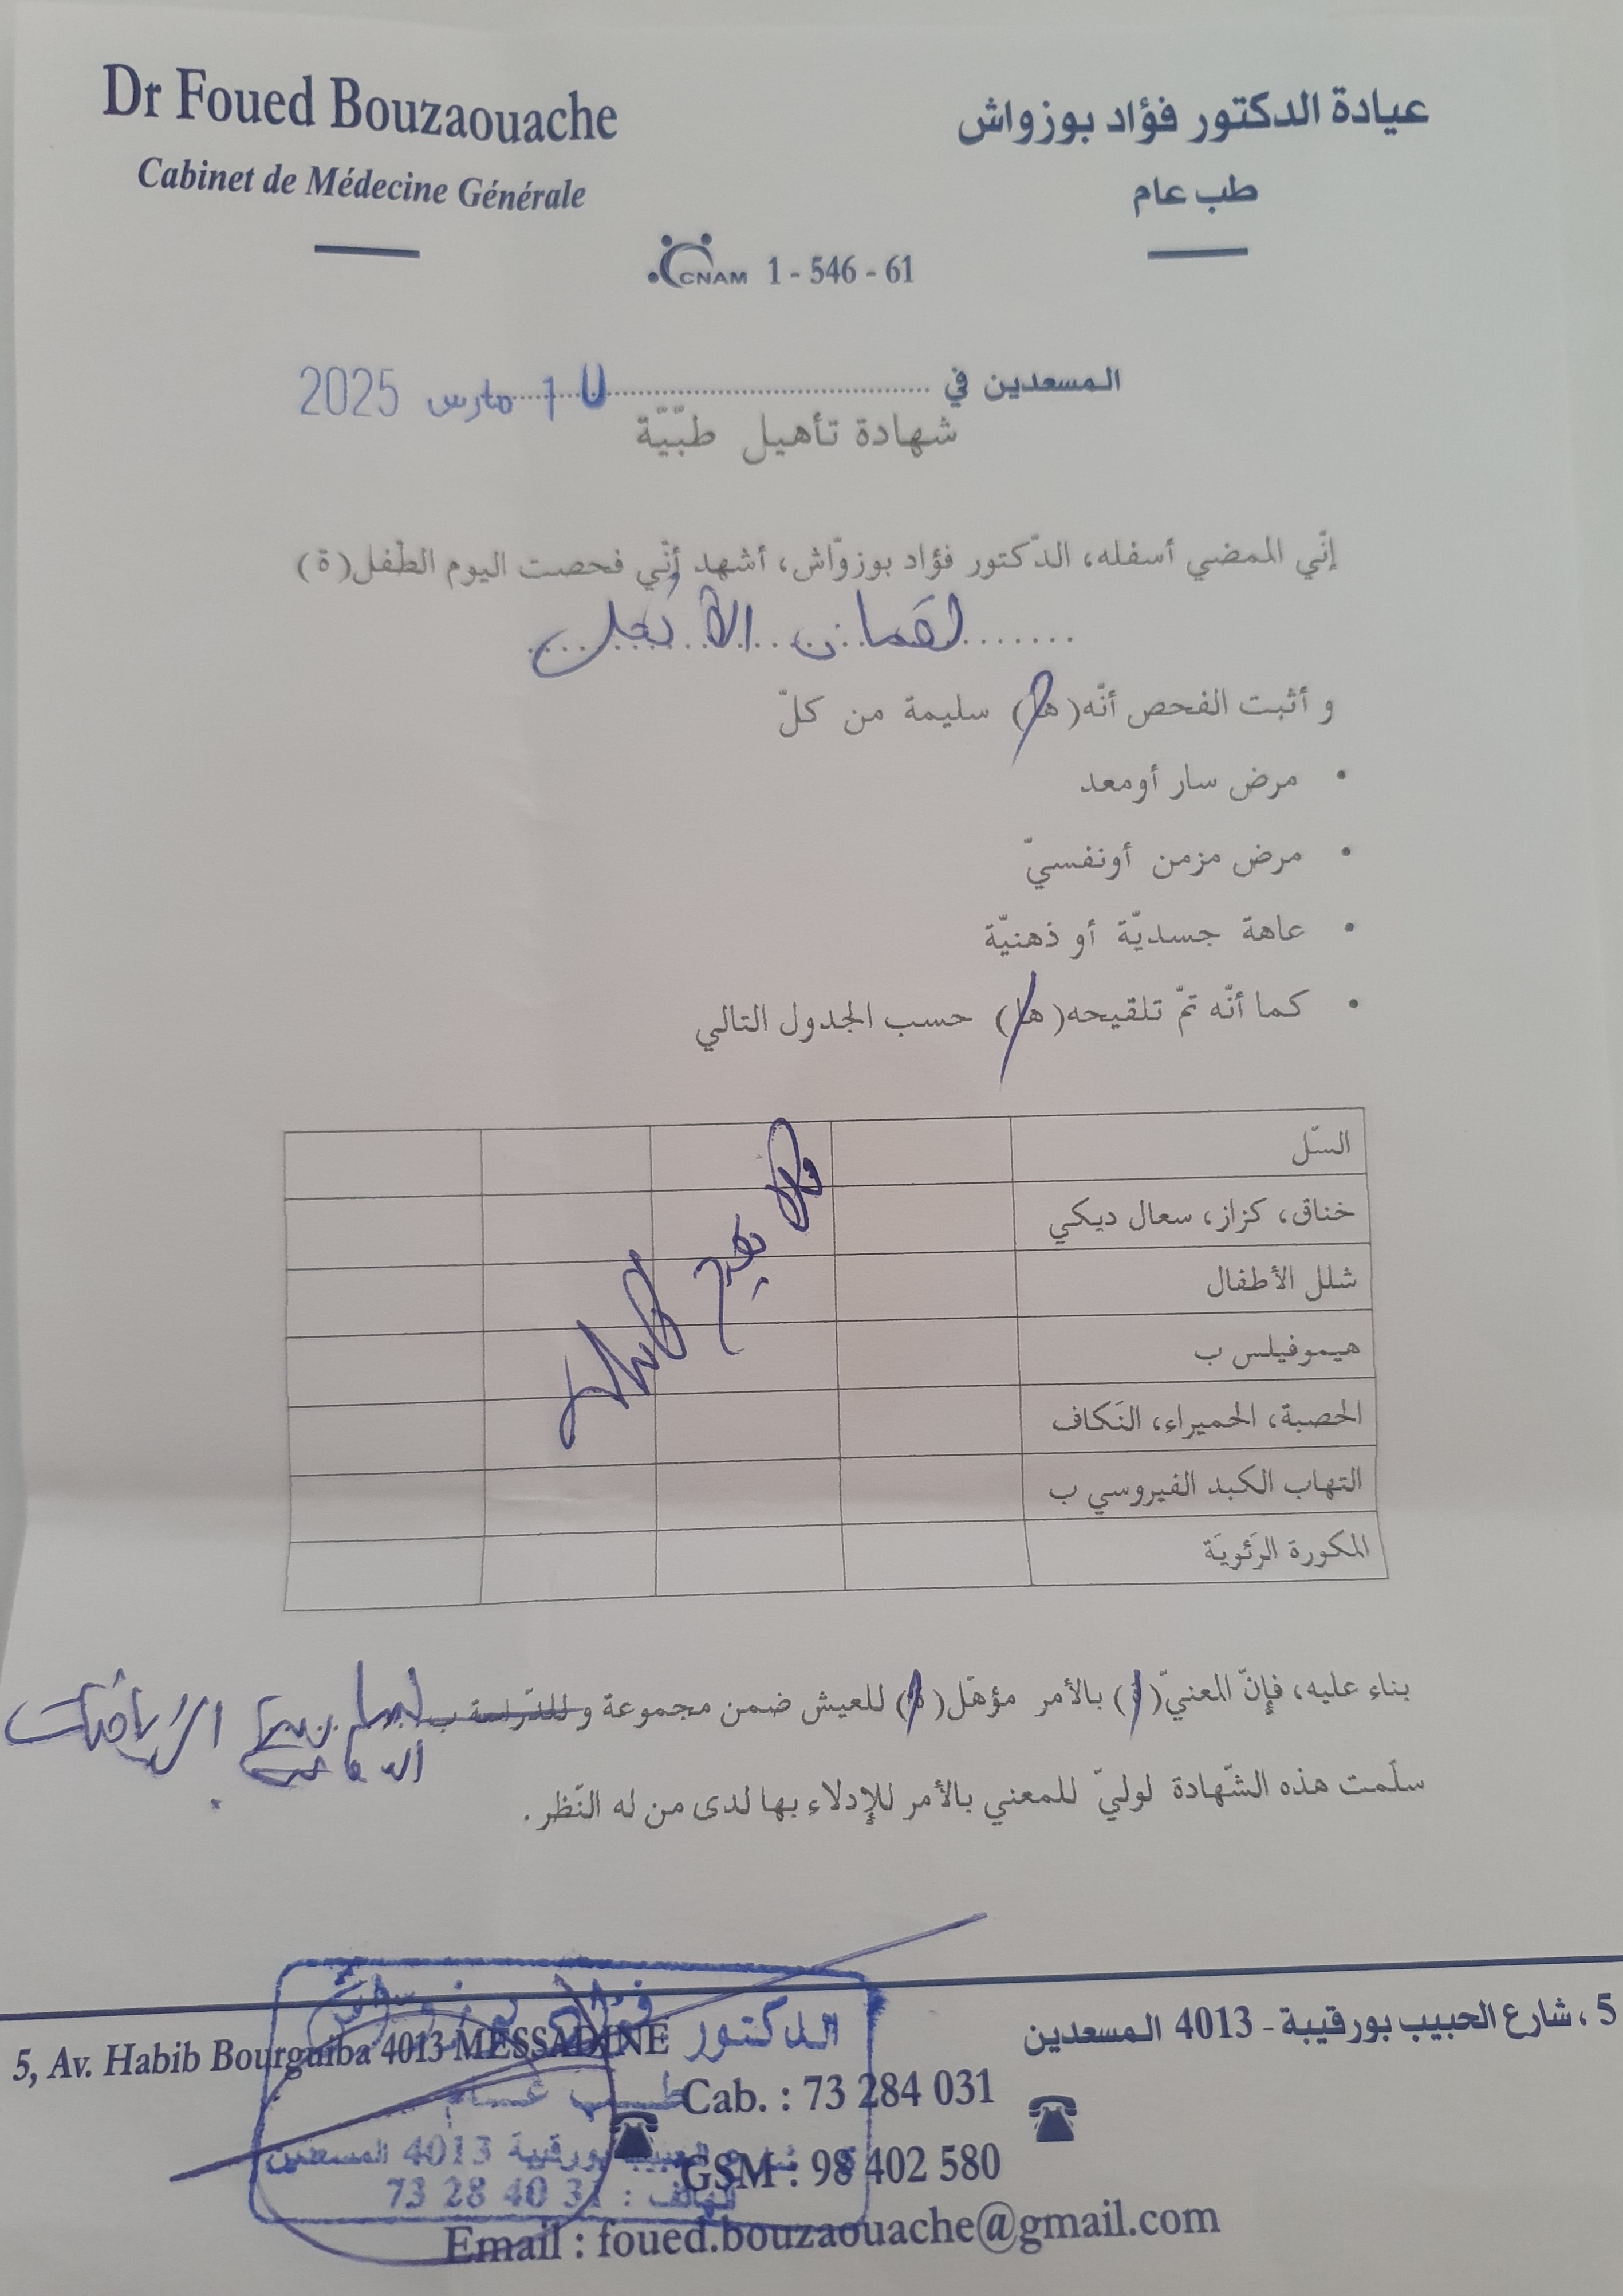 Dr Foued Bouzaouache
Cabinet de Médecine Générale
عيادة الدكتور فؤاد بوزواش
طب عام
CNAM 1 - 546 - 61
المسعدين في 10 مارس 2025
شهادة تأهيل طبّيّة
إنّي الممضي أسفله، الدّكتور فؤاد بوزوّاش، أشهد أنّي فحصت اليوم الطّفل(ة)
لقمان
و أثبت الفحص أنّه(ها) سليمة من كلّ
• مرض سار أومعد
• مرض مزمن أونفسيّ
• عاهة جسديّة أو ذهنيّة
• كما أنّه تمّ تلقيحه(ها) حسب الجدول التالي
السّل
خناق، كزاز، سعال ديكي
شلل الأطفال
هيموفيلس ب
الحصبة، الحميراء، النّكاف
التهاب الكبد الفيروسي ب
المكورة الرّئويّة
بناء عليه، فإنّ المعنيّ(ة) بالأمر مؤهّل(ة) للعيش ضمن مجموعة و للدّراسة ب
سلّمت هذه الشّهادة لوليّ للمعني بالأمر للإدلاء بها لدى من له النّظر.
الدكتور فؤاد بوزواش
طب عام
5 شارع الحبيب بورقيبة 4013 المسعدين
الهاتف : 73 28 40 31
5, Av. Habib Bourguiba 4013 MESSADINE
5 ، شارع الحبيب بورقيبة - 4013 المسعدين
Cab. : 73 284 031
GSM : 98 402 580
Email : foued.bouzaouache@gmail.com